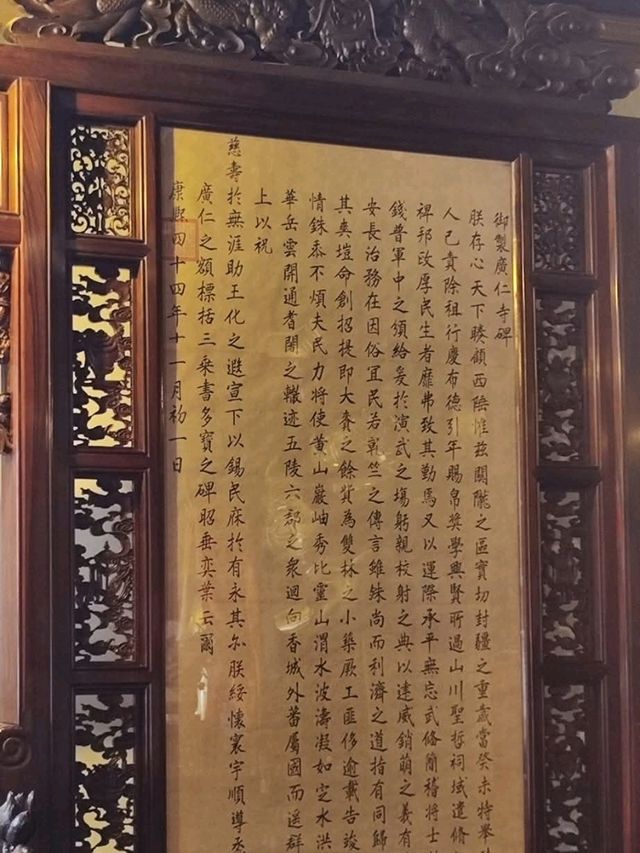 御製廣仁寺碑
朕存心天下睠顧西陲惟茲關隴之區實切封疆之重歲當癸未特舉
人已責除租行慶布德引年賜帛奬學興賢所過山川聖哲祠域遣脩
裨邦政厚民生者靡弗致其勤焉又以運際承平無忘武俻簡稽將士
錢普軍中之頒給爰於演武之場躬親校射之典以建威銷萌之義有
安長治務在因俗宜民若乾竺之傳言雖殊尚而利濟之道指有同歸
其爽塏命創招提即大賚之餘貲為雙林之小築厥工匪侈逾載告竣
情銖黍不煩夫民力將使黄山巖岫秀比靈山渭水波濤凝如定水洪
華岳雲開通耆闍之轍迹五陵六郡之衆迴向香城外蕃屬國而遥群
上以祝
慈壽於無涯助王化之遐宣下以錫民庥於有永其亦朕綏懷寰宇順導
廣仁之額標括三乘書多寶之碑昭垂奕葉云爾
康熙四十四年十一月初一日